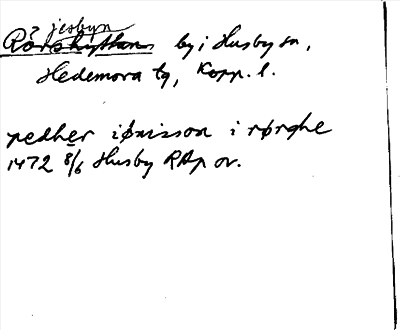 ? jesbyn
Rörshyttan by i Husby sn,
Hedemora tg, Kopp. l.
pedher iønisson i rørghe
1472 8/6 Husby RAp or.